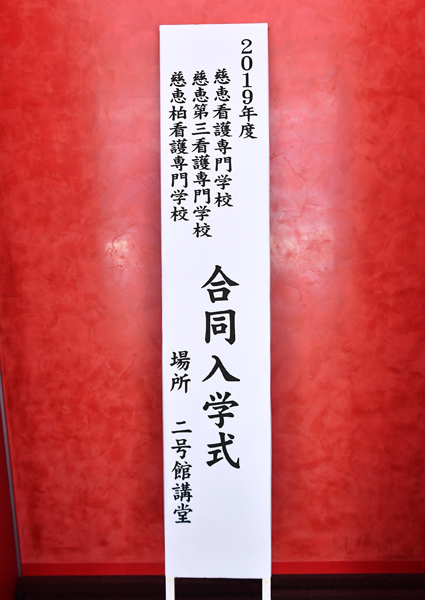 2019年度
慈恵看護専門学校
慈恵第三看護専門学校
慈恵柏看護専門学校
合同入学式
場所　二号館講堂